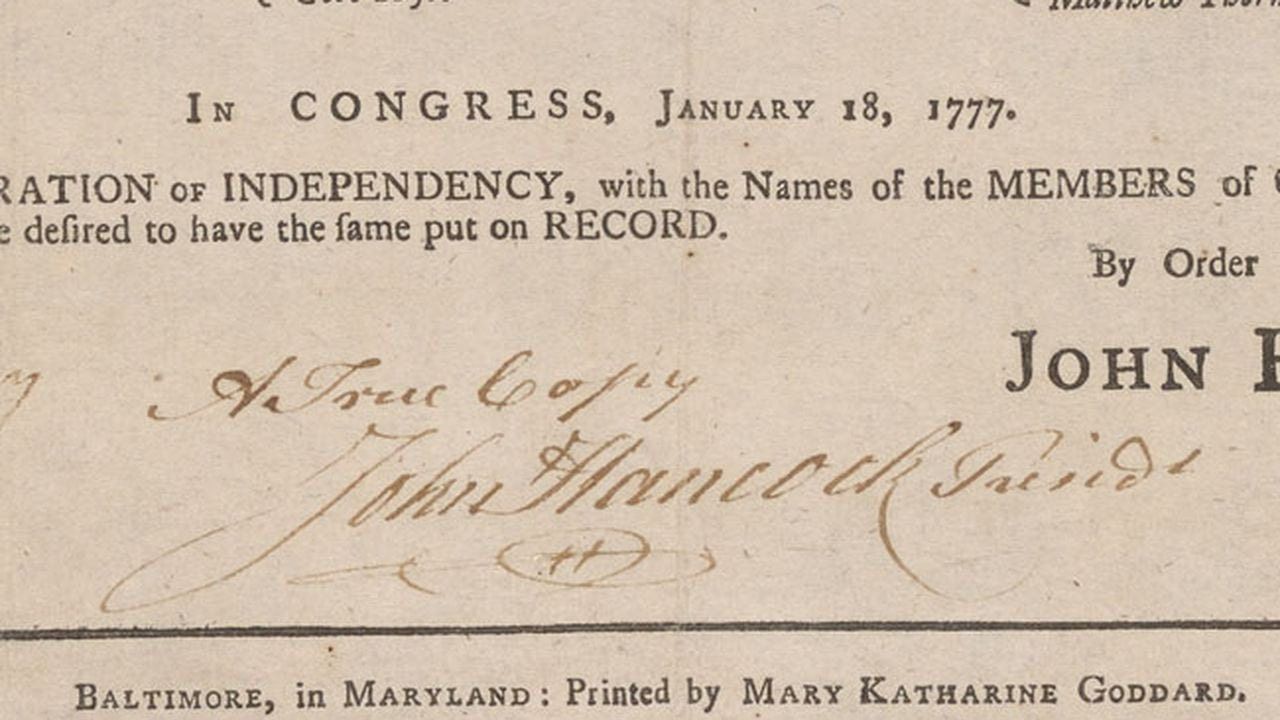 Matthew
IN CONGRESS, JANUARY 18, 1777.
RATION OF INDEPENDENCY, with the Names of the MEMBERS of
e deſired to have the ſame put on RECORD.
By Order
JOHN H
A True Copy
John Hancock Presidt
BALTIMORE, in MARYLAND: Printed by MARY KATHARINE GODDARD.